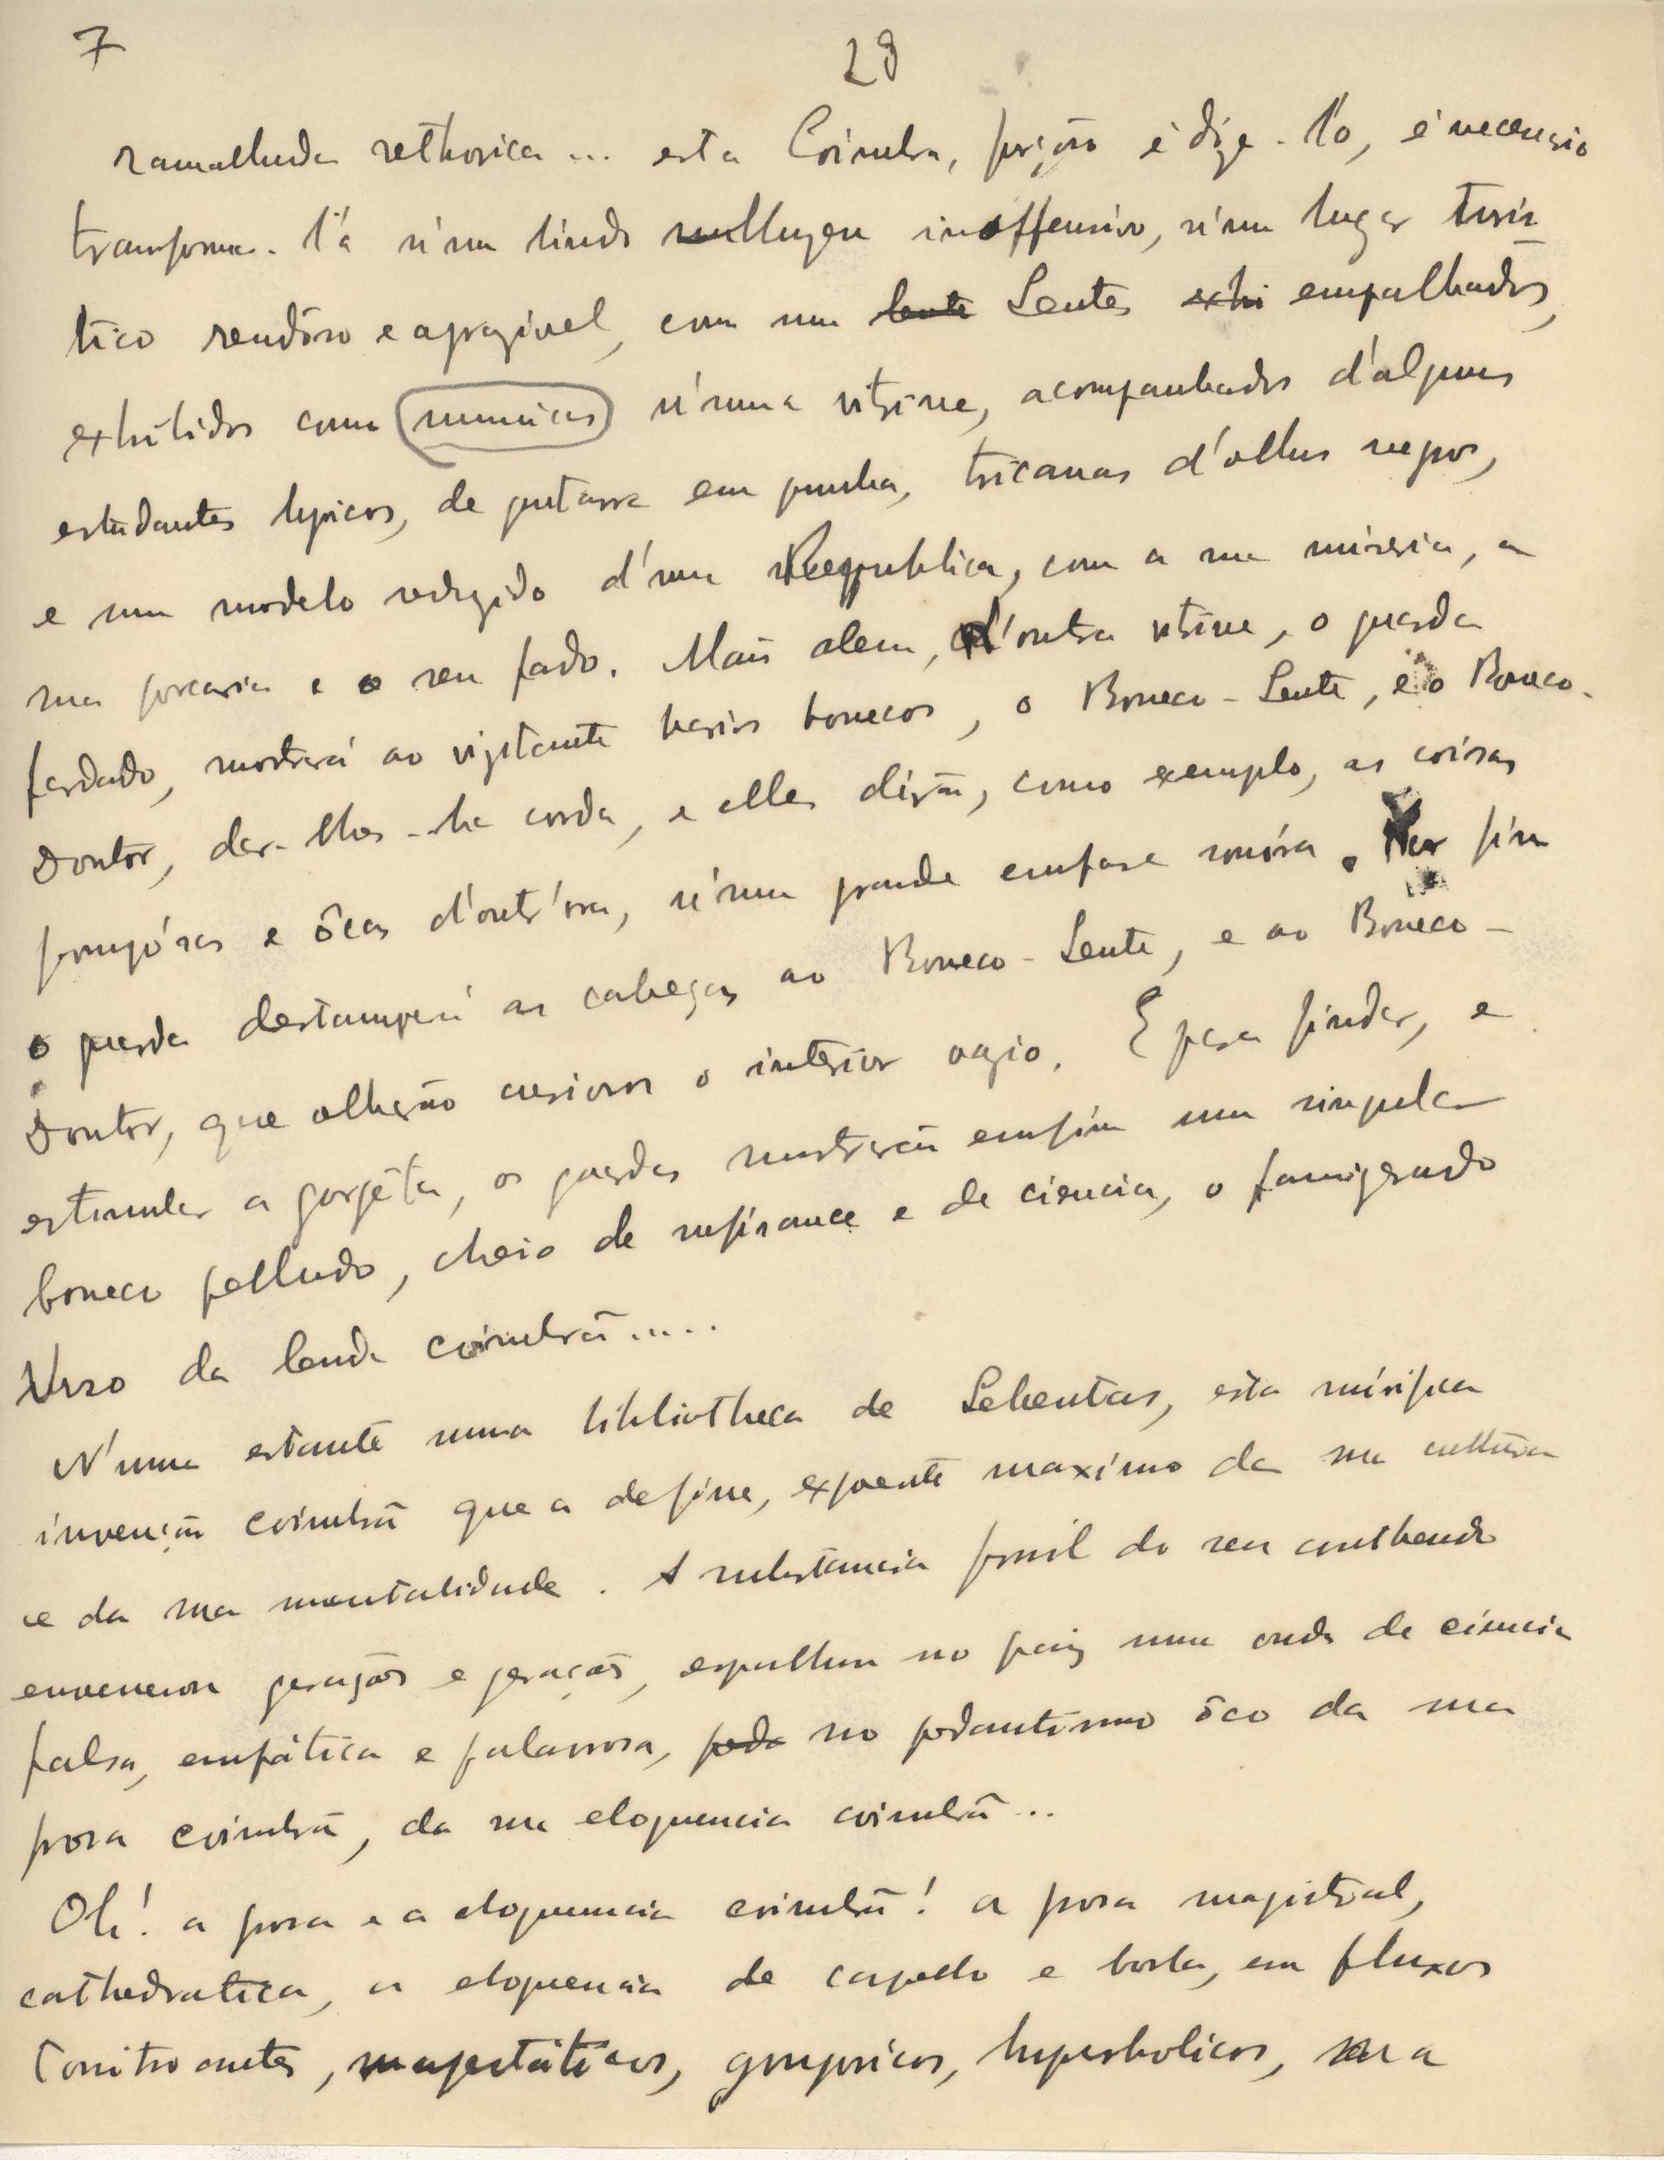 7
28
ramalhuda rethorica ... esta Coimbra, forçoso é dize-l'o, é necessario
transforma-l'a n'um lindo mulhugeu inoffensivo, n'um lugar turis
tico rendôso e aprazivel, com um lente Lentes exhi empalhados,
exhibidos como mumias n'uma vitrine, acompanhados d'alguns
estudantes typicos, de guitarra em punho, tricanas d'olhos negros,
e um modelo reduzido d'uma Republica, com a sua miseria, a
sua porcaria e o seu fado. Mais alem, n'outra vitrine, o guarda
fardado, mostrará ao vizitante varios bonecos, o Boneco-Lente, e o Boneco-
Doutor, dar-lhes-ha corda, e elles dirão, como exemplo, as coisas
pompósas e ôcas d'outr'ora, n'uma grande emfase sonóra. Por fim
o guarda destampará as cabeças ao Boneco-Lente, e ao Boneco-
Doutor, que olharão curiosos o interior vazio. E para findar, e
estimular a gorgêta, os guardas mostrarão emfim um singular
boneco pelludo, cheio de nusirance e de ciencia, o famigerado
Urso da lenda coimbrã.....
N'uma estante uma bibliotheca de Sebentas, esta mirifica
invenção coimbrã que a define, expoente maximo da sua cultura
e da sua mentalidade. A substancia fossil do seu conthendo
envenenou gerações e gerações, espalhou no paiz uma onda de ciencia
falsa, emfática e palavrosa, peda no pedantismo ôco da sua
prosa coimbrã, da sua eloquencia coimbrã...
Oh! a prosa e a eloquencia coimbrã! a prosa magistral,
cathedratica, a eloquencia de capello e borla, em fluxos
tonitroantes, magestáticos, gongoricos, hyperbolicos, sua